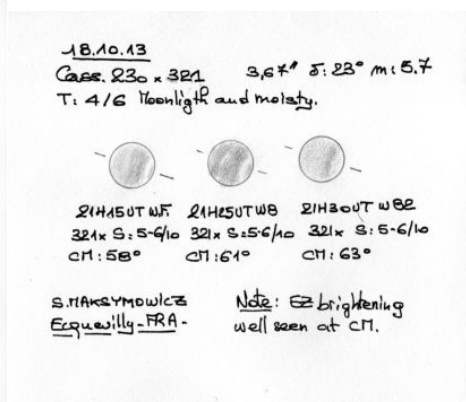 18.10.13
Cass. 230 x 321 3,67" δ: 23° m: 5.7
T: 4/6 Moonligth and moisty.
21H15UT WF. 21H25UT W8 21H30UT W82
321x S: 5-6/10 321x S: 5-6/10 321x S: 5-6/10
CM: 58° CM: 61° CM: 63°
S. MAKSYMOWICZ Note: EZ brightening
Ecquevilly-FRA- well seen at CM.